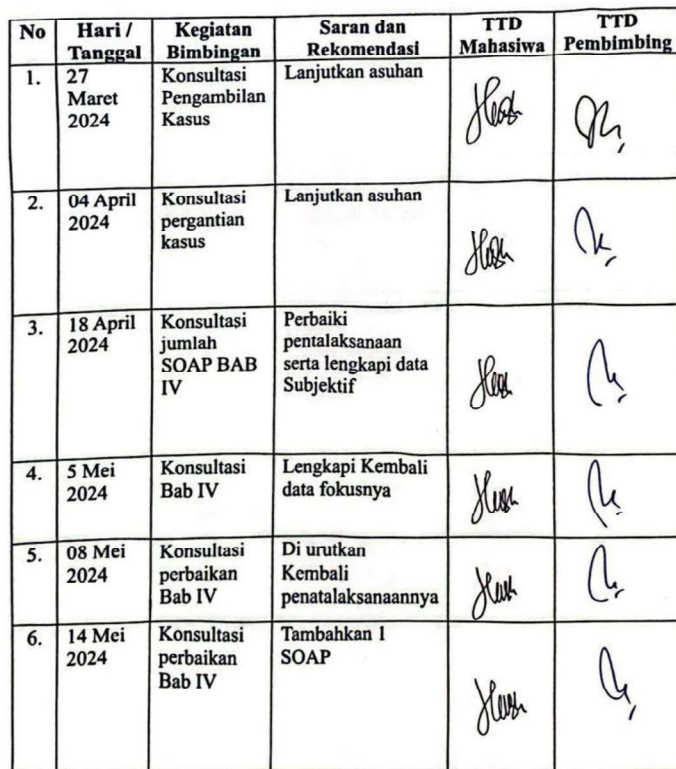 No Hari / Tanggal Kegiatan Bimbingan Saran dan Rekomendasi TTD Mahasiwa TTD Pembimbing
1. 27 Maret 2024 Konsultasi Pengambilan Kasus Lanjutkan asuhan
2. 04 April 2024 Konsultasi pergantian kasus Lanjutkan asuhan
3. 18 April 2024 Konsultasi jumlah SOAP BAB IV Perbaiki pentalaksanaan serta lengkapi data Subjektif
4. 5 Mei 2024 Konsultasi Bab IV Lengkapi Kembali data fokusnya
5. 08 Mei 2024 Konsultasi perbaikan Bab IV Di urutkan Kembali penatalaksanaannya
6. 14 Mei 2024 Konsultasi perbaikan Bab IV Tambahkan 1 SOAP